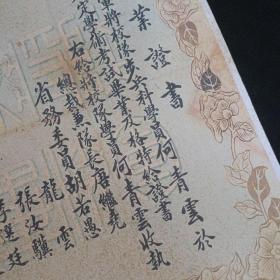 業證書
軍將校隊步兵科學員何青雲於
定學術考試畢業及格特給證書
右給將校隊學員何青雲收執
總裁兼隊長唐繼堯
省務委員胡若愚
龍雲
張汝驥
李選廷